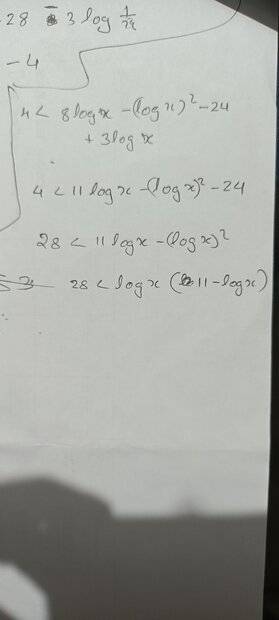 28 - 3 log 1/24
- 4
4 < 8 log x - (log x)² - 24
+ 3 log x
4 < 11 log x - (log x)² - 24
28 < 11 log x - (log x)²
28 < log x (11 - log x)